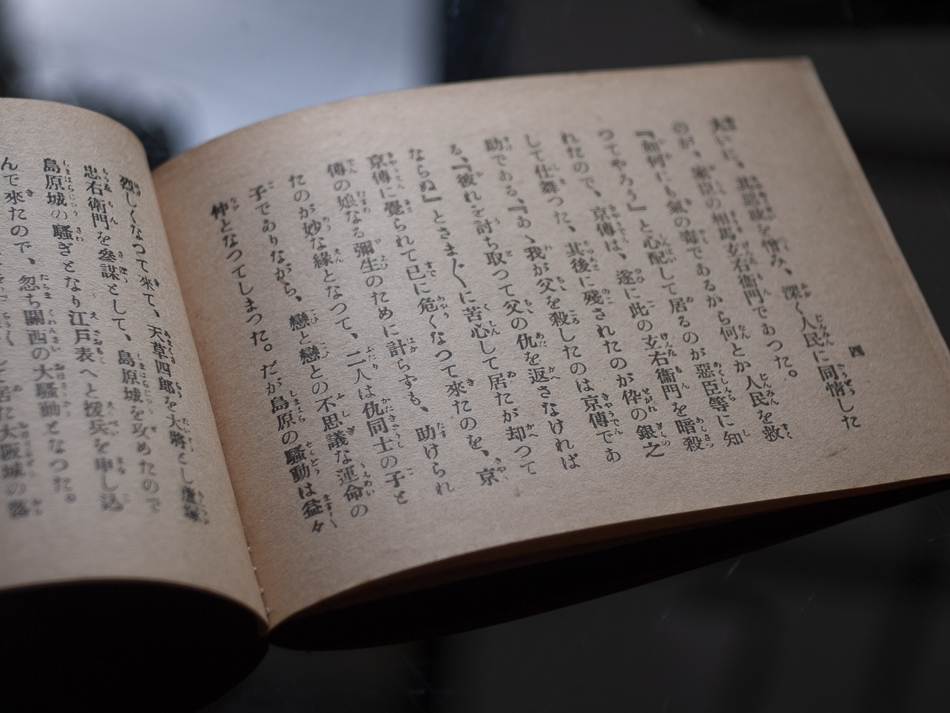 四
大いに、其惡政を憎み、深く人民に同情した
のが、家臣の相馬玄右衞門であつた。
『如何にも氣の毒であるから何とか人民を救
つてやろう』と心配して居るのが惡臣等に知
れたので、京傳は、遂に此の玄右衞門を暗殺
して仕舞つた、其後に殘されたのが伜の銀之
助である、『あゝ我が父を殺したのは京傳であ
る、『彼れを討ち取つて父の仇を返さなければ
ならぬ』とさま〴〵に苦心して居たが却つて
京傳に覺られて已に危くなつて來たのを、京
傳の娘なる彌生のために計らずも、助けられ
たのが妙な緣となつて、二人は仇同士の子と
子でありながら、戀と戀との不思議な運命の
仲となつてしまつた。だが島原の騷動は益々
烈しくなつて來て、天草四郎を大將とし蘆塚
忠右衞門を參謀として、島原城を攻めたので
島原城の騷ぎとなり江戸表へと援兵を申し込
んで來たので、忽ち關西の大騷動となつた。
大阪城の落